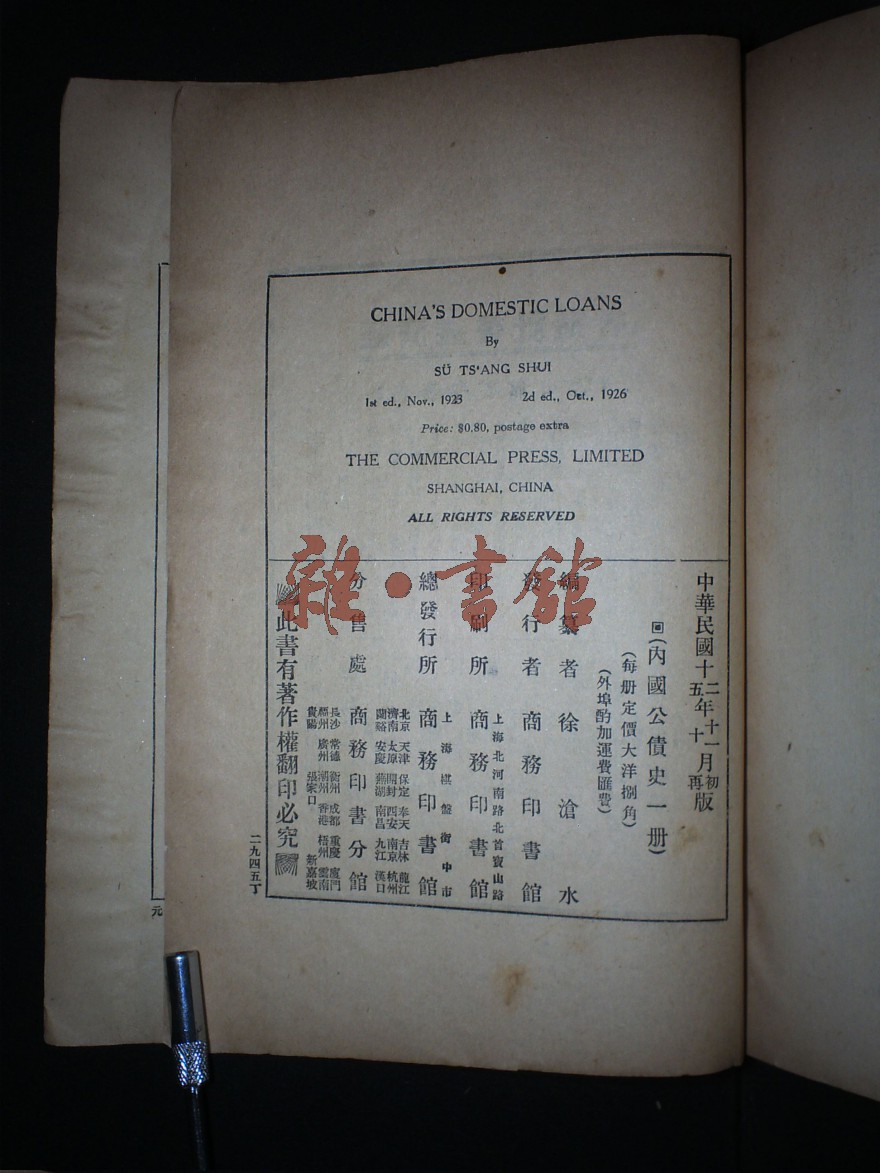 CHINA'S DOMESTIC LOANS
By
SÜ TS'ANG SHUI
1st ed., Nov., 1923 2d ed., Oct., 1926
Price: $0.80, postage extra
THE COMMERCIAL PRESS, LIMITED
SHANGHAI, CHINA
ALL RIGHTS RESERVED
中華民國十二年十一月初版
五十再
回(內國公債史一册)
(每册定價大洋捌角)
(外埠酌加運費匯費)
編纂者 徐滄水
發行者 商務印書館
上海北河南路北首寶山路
印刷所 商務印書館
上海棋盤街中市
總發行所 商務印書館
北京 天津 保定 奉天 吉林 龍江
濟南 太原 開封 西安 南京 杭州
蘭谿 安慶 蕪湖 南昌 九江 漢口
分售處 商務印書分館
長沙 常德 衡州 成都 重慶 廈門
福州 廣州 潮州 香港 梧州 雲南
貴陽 張家口 新嘉坡
此書有著作權翻印必究
二九四五丁
元
雜·書館